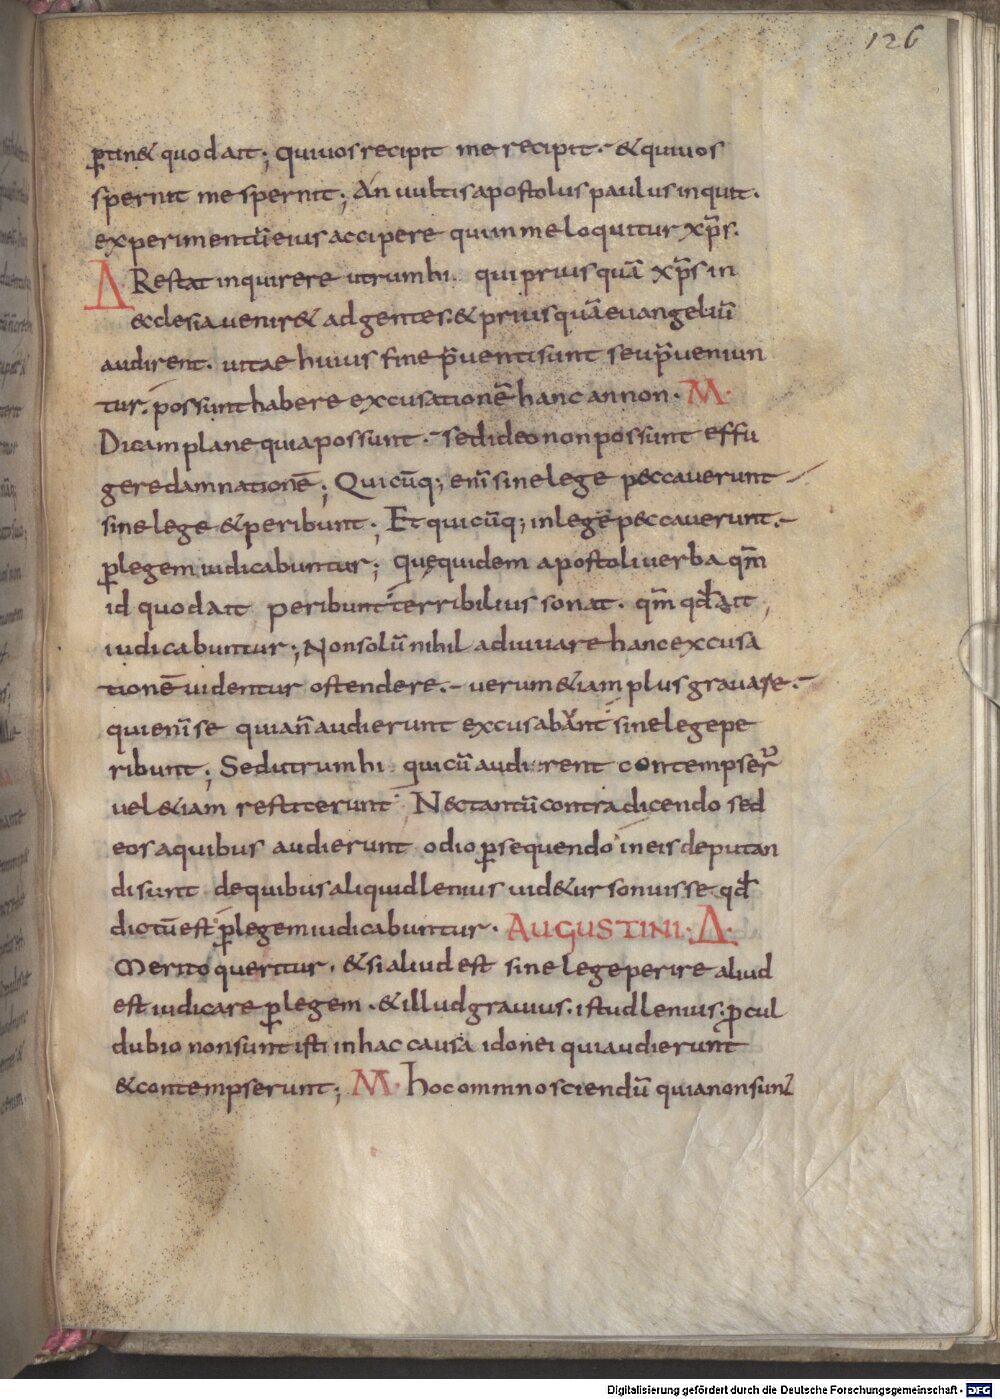 126
ꝑtin& quod ait; qui uos recipit me recipit. & qui uos
spernit me spernit; An uultis apostolus paulus inquit.
experimentū eius accipere qui in me loquitur xp̄s.
Δ Restat inquirere utrum hi. qui prius quā xp̄s in
ecclesia uenir& ad gentes. & prius quā euangeliū
audirent. uitae huius fine p̄uenti sunt seu p̄ueniun
tur. possunt habere excusationē hanc an non. M.
Dicam plane quia possunt. sed ideo non possunt effu
gere damnationē; Quicūq; eni̅ sine lege peccauerunt
sine lege & peribunt; Et quicūq; in lege peccauerunt.
ꝑ legem iudicabuntur; que quidem apostoli uerba qm̅
id quod ait peribunt terribilius sonat. qm̅ qđ ait
iudicabuntur; Non solū nihil adiuuare hanc excusa
tionē uidentur ostendere. uerum &iam plus grauare.
qui eni̅ se quia n̄ audierunt excusabant sine lege pe
ribunt; Sed utrum hi qui cū audirent contempser̄
uel &iam restiterunt Nec tantū contradicendo sed
eos a quibus audierunt odio ꝑsequendo in eis deputan
di sunt de quibus aliquid lenius uid&ur sonuisse qđ
dictū est ꝑ legem iudicabuntur. AUGUSTINI. Δ.
Merito queritur. & si aliud est sine lege perire aliud
est iudicare ꝑ legem. & illud grauius. istud lenius. procul
dubio non sunt isti in hac causa idonei qui audierunt
& contempserunt; M. hoc omnino sciendū quia non sunt
Digitalisierung gefördert durch die Deutsche Forschungsgemeinschaft - DFG